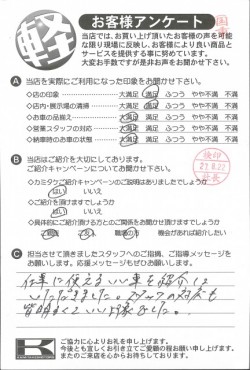 軽
お客様アンケート
当店では、お買い上げ頂いたお客様の声を可能
な限り現場に反映し、お客様により良い商品と
サービスを提供する事に努めています。
大変お手数ですが是非お声をお聞かせ下さい。
A 当店を実際にご利用になった印象をお聞かせ下さい。
◇店の印象 大満足 満足 ふつう やや不満 不満
◇店内・展示場の清掃 大満足 満足 ふつう やや不満 不満
◇お車の品揃え 大満足 満足 ふつう やや不満 不満
◇営業スタッフの対応 大満足 満足 ふつう やや不満 不満
◇納車時のお車の状態 大満足 満足 ふつう やや不満 不満
B 当店はご紹介を大切にしております。
ご紹介キャンペーンについてお聞かせ下さい。
◇カミタケご紹介キャンペーンのご説明はありましたでしょうか
はい いいえ
◇ご紹介を頂けますでしょうか
はい いいえ
◇具体的にご紹介頂ける方とのご関係をお聞かせ頂けますでしょうか
職場の方 機会があれば紹介したい
C 担当させて頂きましたスタッフへのご指摘、ご指導メッセージを
お願いします。応援メッセージもぜひお願いします。
仕事に使えるいい車を紹介して
いただきました。スタッフの対応も
皆明るくていい印象でした。
K
ご協力に心よりお礼を申し上げます。
今後とも宜しくお引き立てご愛顧の程お願い申し上げます。
またのご来店を心からお待ちしております。